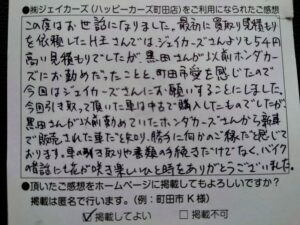 ㈱ジェイカーズ(ハッピーカーズ町田店)をご利用になられたご感想
この度はお世話になりました。最初に買取り見積もり
を依頼したH主さんでは、ジェイカーズさんよりも5千円
高い見積もりでしたが、黒田さんが以前ホンダカー
ズにお勤めだったことと、町田市愛を感じたので
今回はジェイカーズさんにお願いすることにしました。
今回引き取って頂いた車は中古で購入したものでしたが、
黒田さんが以前勤めていたホンダカーズさんから新車
で販売された車だと知り、勝手に何かのご縁だと感じて
おります。車の引き取りや書類の手続きだけでなく、バイク
の昔話しも花が咲き楽しいひと時をありがとうございました。
●頂いたご感想をホームページに掲載してもよろしいですか？
掲載は匿名で行います。(例：町田市 K 様)
☑掲載してよい □掲載不可